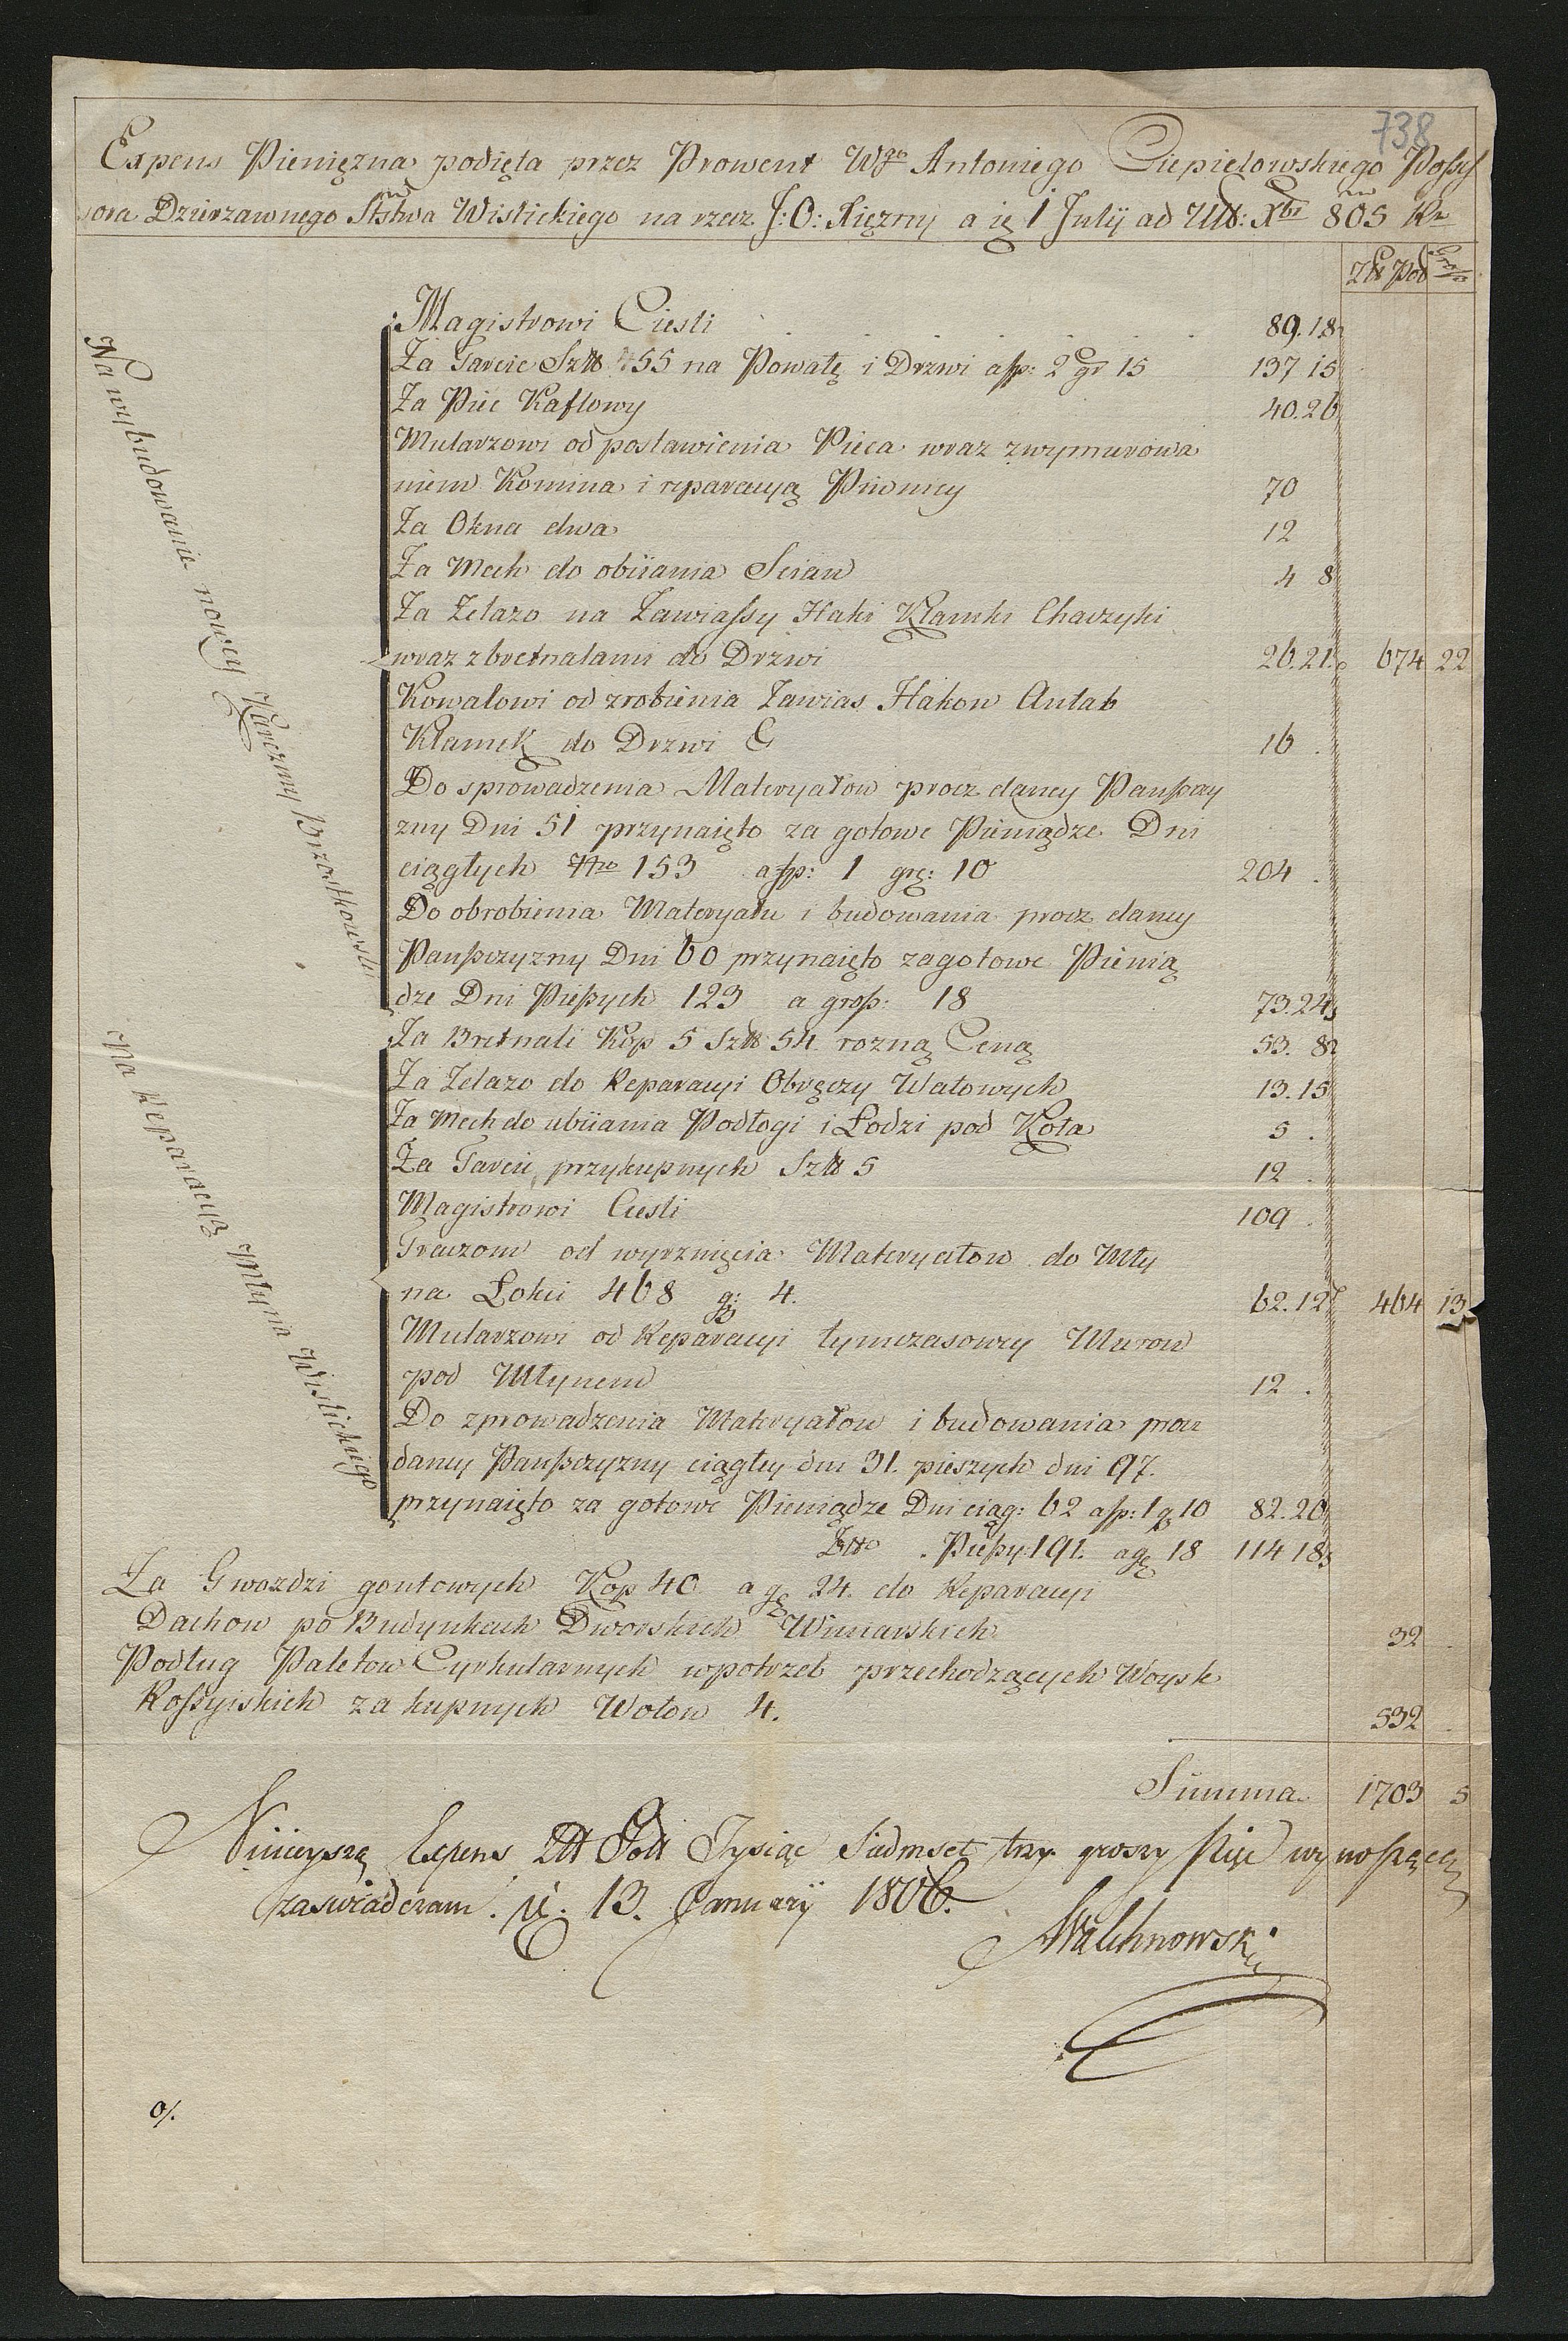 738
Expens Pieniężna podięta przez Prowent Wgo Antoniego Ciepielowskiego Possys
sora Dzierzawnego Ststwa Wislickiego na rzecz J: O: Xiężny a 1 Julÿ ad Ult: Xbr 805 Rn
Złł Pol Grosze
Na wybudowanie nowey Karczmy Brzostkowski
Magistrowi Ciesli 89. 18
Za Tarcic Sztt 55 na Powałę i Drzwi a fp: 2 gr 15 137 15
Za Piec Kaflowy 40. 26
Mularzowi od postawienia Pieca wraz z wymurowa
niem Komina i reparacyą Piwnicy 70
Za Okna dwa 12
Za Mech do obiiania Scian 4 8
Za Zelazo na Zawiassy Haki Klamki Chaczyki
wraz z bretnalami do Drzwi 26. 21. 674 22
Kowalowi od zrobienia Zawias Hakow Antab
Klamek do Drzwi & 16 .
Do sprowadzenia Materyałow procz daney Panszczy
zny Dni 51 przynaięto za gotowe Pieniądze Dni
ciągłych Nro 153 a fp: 1 grę: 10 204 .
Do obrobienia Materyału i budowania procz daney
Panszczyzny Dni 60 przynaięto za gotowe Pienią
dze Dni Pieszych 123 a grosz: 18 73. 24
Na Reparacyą Młyna Wislickiego
Za Bretnali Kop 5 Sztt 54. rozną Ceną 53. 8
Za Zelazo do Reparacyi Obręczy Wałowych 13. 15
Za Mech do ubiiania Podłogi i Łodzi pod Koła 5 .
Za Tarcic przykupnych Sztt 5 12 .
Magistrowi Ciesli 109 .
Traczom od wyrznięcia Materyałow do Mły
na Łokci 468 g: 4. 62. 12 464 13
Mularzowi od Reparacyi tymczasowey Murow
pod Młynem 12 .
Do zprowadzenia Materyałow i budowania procz
daney Panszczyzny ciągłey dni 31. pieszych dni 97.
przynaięto za gotowe Pieniądze Dni ciąg: 62 a fp: 1 g 10 82. 20
Dtto . Pieszy: 191. a gę 18 114 18
Za Gwozdzi gontowych Kop 40 a gę 24. do Reparacyi
Dachow po Budynkach Dworskich Winiarskich 32 .
Podług Paletow Cyrkularnych w potrzeb przechodzących Woysk
Rossyiskich zakupnych Wołow 4. 532 .
Summa 1703 5
Ninieyszą Expens Złł Poll Tysiąc Siedmset trzy groszy Pięć wynoszącą
zaswiadczam. d. 13. January 1806.
Walchnowski
0/.